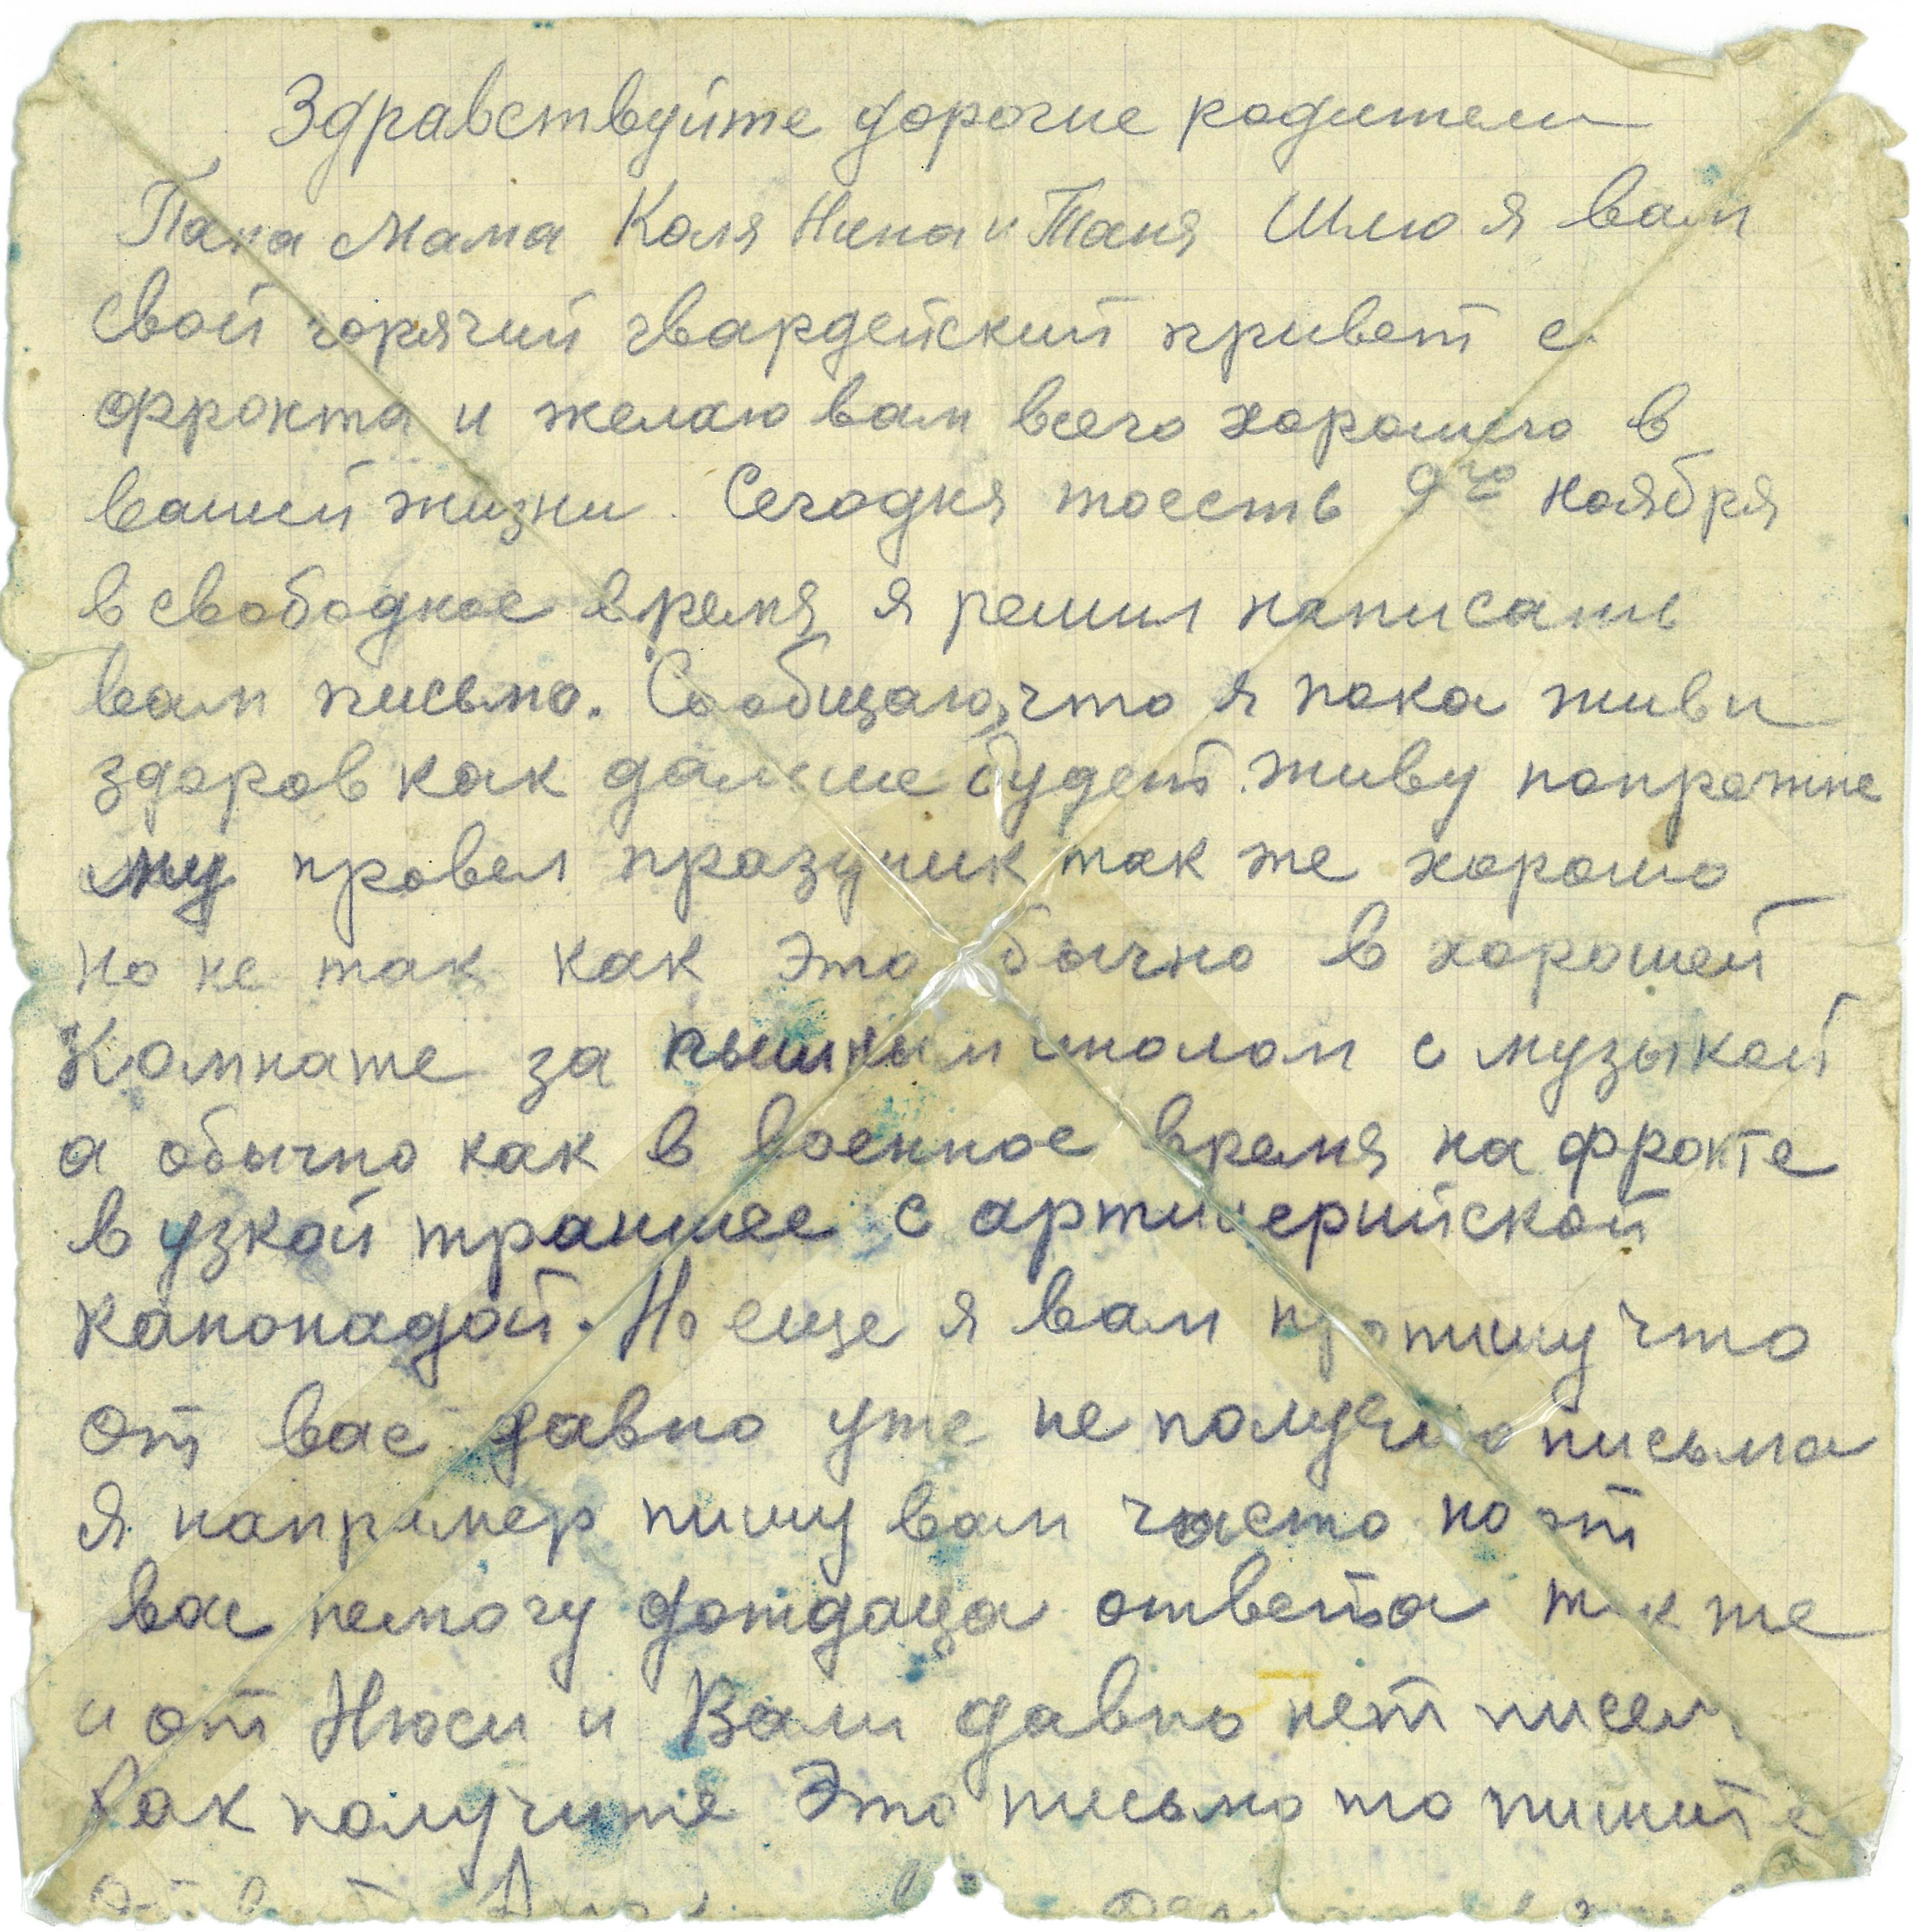 Здравствуйте дорогие родители
Папа Мама Коля Нина и Таня Шлю я вам
свой горячий гвардейский привет с
фронта и желаю вам всего хорошего в
вашей жизни. Сегодня тоесть 9го ноября
в свободное время я решил написать
вам письмо. Сообщаю, что я пока жив и
здоров как дальше будет. живу попрежне
му провел празник так же хорошо
но не так как это бычно в хорошей
Комнате за пышным столом с музыкой
а обычно как в военное время на фронте
в узкой траншее с артилерийской
канонадой. Но еще я вам пропишу что
от вас давно уже не получаю письма
Я например пишу вам часто но от
вас немогу дождаца ответа так же
и от Нюси и Вали давно нет писем
Как получите Это письмо то пишите